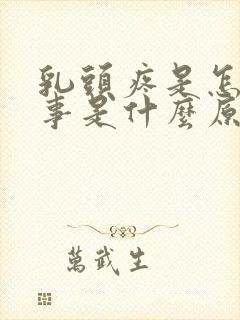 乳頭疼是怎
事是什麼原
萬武生